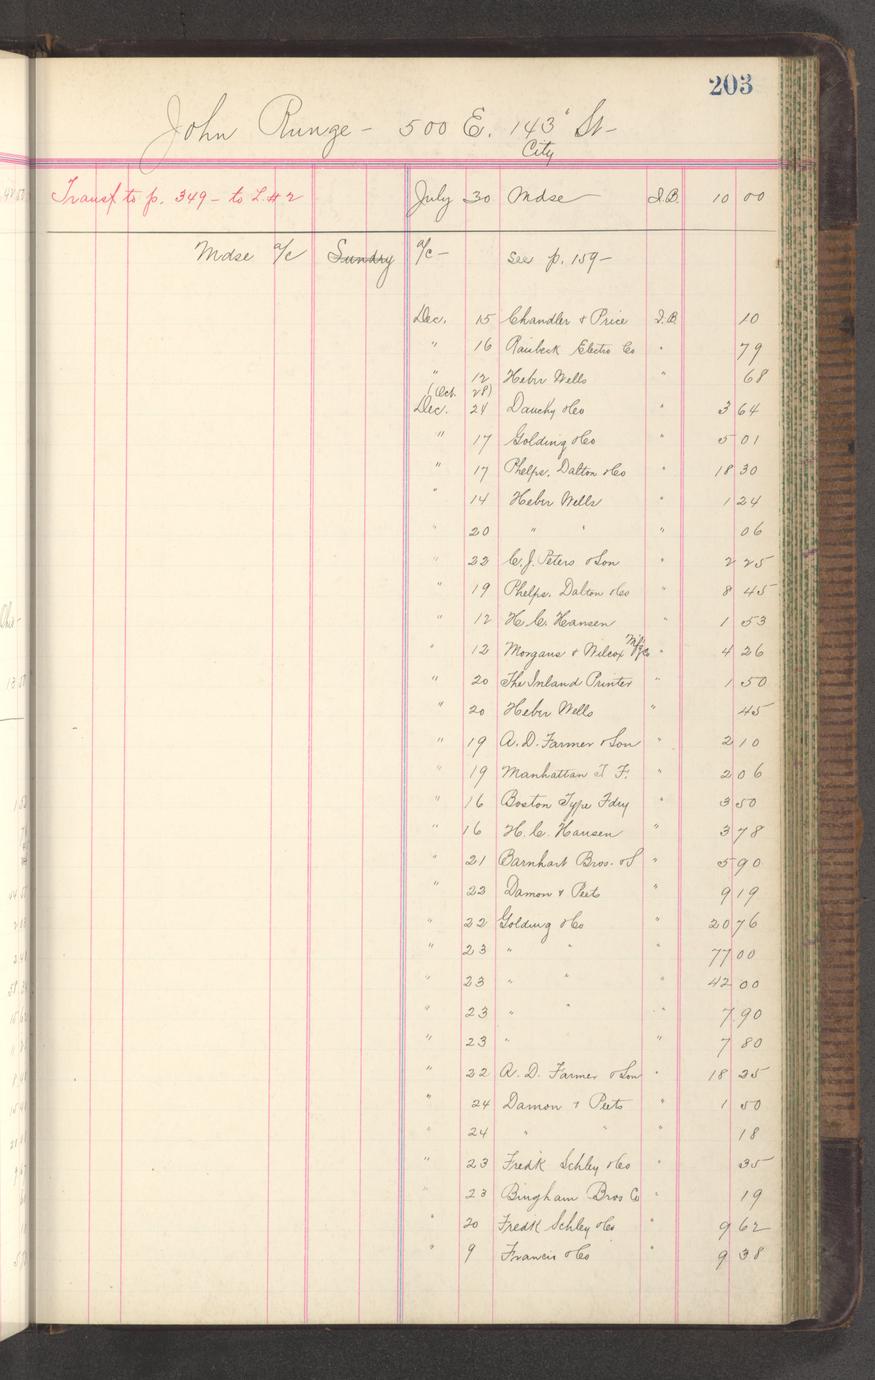 203
John Runge - 500 E. 143' St -
City
Transf to p. 349 - to L. # 2 July 30 Mdse I.B. 10 00
Mdse a/c Sundry a/c - see p. 159 -
Dec. 15 Chandler & Price I.B. 10
" 16 Raisbeck Electro Co " 79
" 12 Heber Wells " 68
(Oct. 28)
Dec. 24 Dauchy & Co " 3 64
" 17 Golding & Co " 5 01
" 17 Phelps, Dalton & Co " 18 30
" 14 Heber Wells " 1 24
" 20 " " " 06
" 22 C. J. Peters & Son " 2 25
" 19 Phelps, Dalton & Co " 8 45
" 12 H. C. Hansen " 1 53
" 12 Morgans & Wilcox Mfg Co " 4 26
" 20 The Inland Printer " 1 50
" 20 Heber Wells " 45
" 19 A. D. Farmer & Son " 2 10
" 19 Manhattan T. F. " 2 06
" 16 Boston Type Fdry " 3 50
" 16 H. C. Hansen " 3 78
" 21 Barnhart Bros. & S " 5 90
" 23 Damon & Peets " 9 19
" 22 Golding & Co " 20 76
" 23 " " " 77 00
" 23 " " " 42 00
" 23 " " " 7 90
" 23 " " 7 80
" 22 A. D. Farmer & Son " 18 25
" 24 Damon & Peets " 1 50
" 24 " " " 18
" 23 Fredk Schley & Co " 35
" 23 Bingham Bros Co " 19
" 20 Fredk Schley & Co " 9 62
" 9 Francis & Co " 9 38